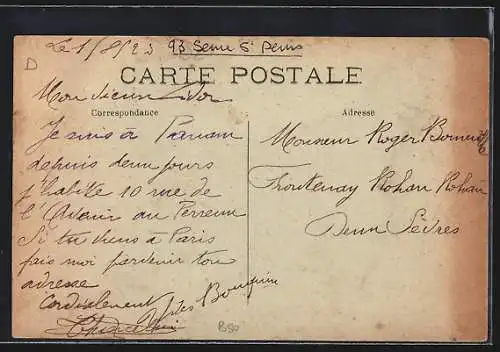 Le 1/8/23 93 Seine St Denis
D
CARTE POSTALE
Correspondance
Adresse
Mon vieux
Je suis à Panam
depuis deux jours
j'habite 10 rue de
l'Avenir au Perreux
Si tu viens à Paris
fais moi parvenir ton
adresse
Cordialement
Monsieur Roger
Frontenay Rohan Rohan
Deux Sèvres